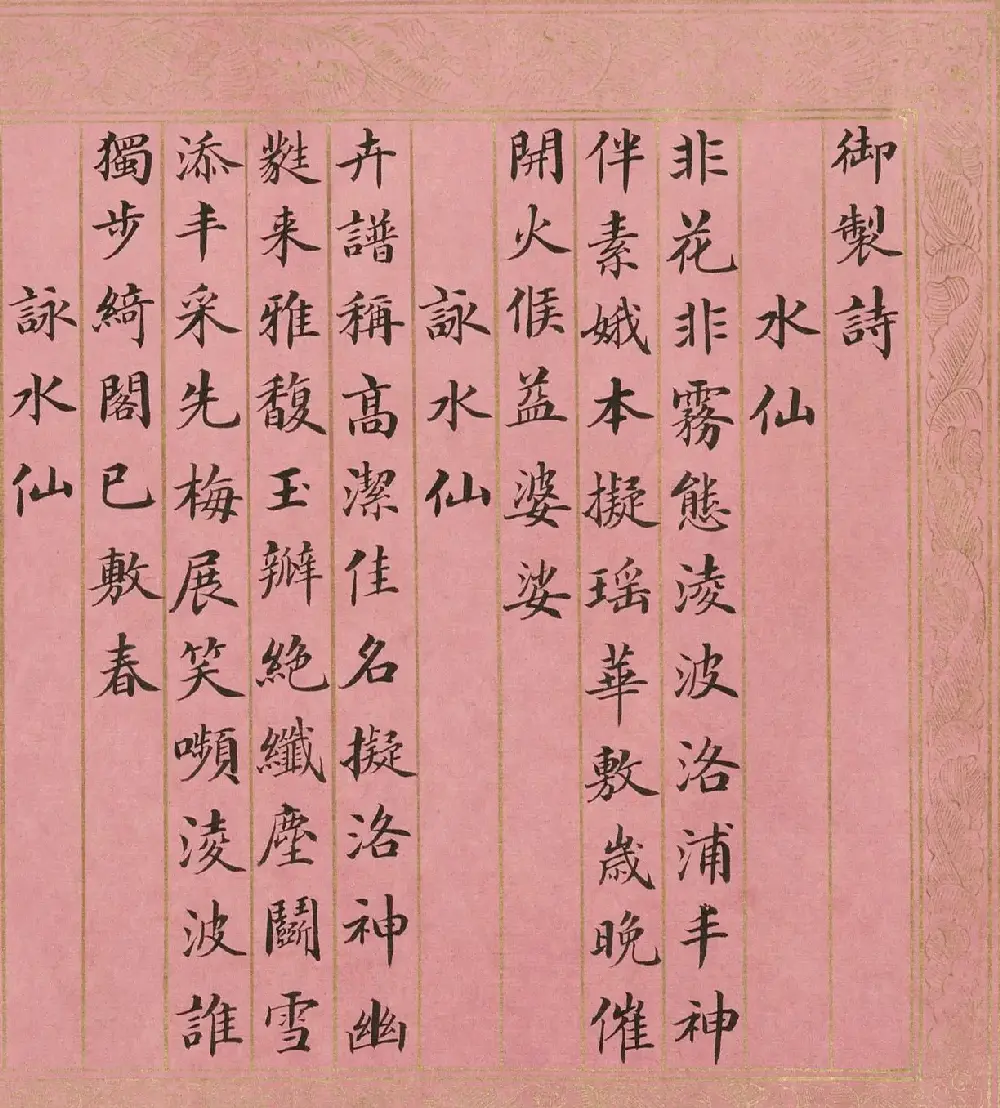 御製詩
水仙
非花非霧態淩波洛浦丰神
伴素娥本擬瑶華敷歲晚催
開火候益婆娑
詠水仙
卉譜稱高潔佳名擬洛神幽
蕤来雅馥玉瓣絶纖塵鬭雪
添丰采先梅展笑嚬淩波誰
獨步綺閣已敷春
詠水仙